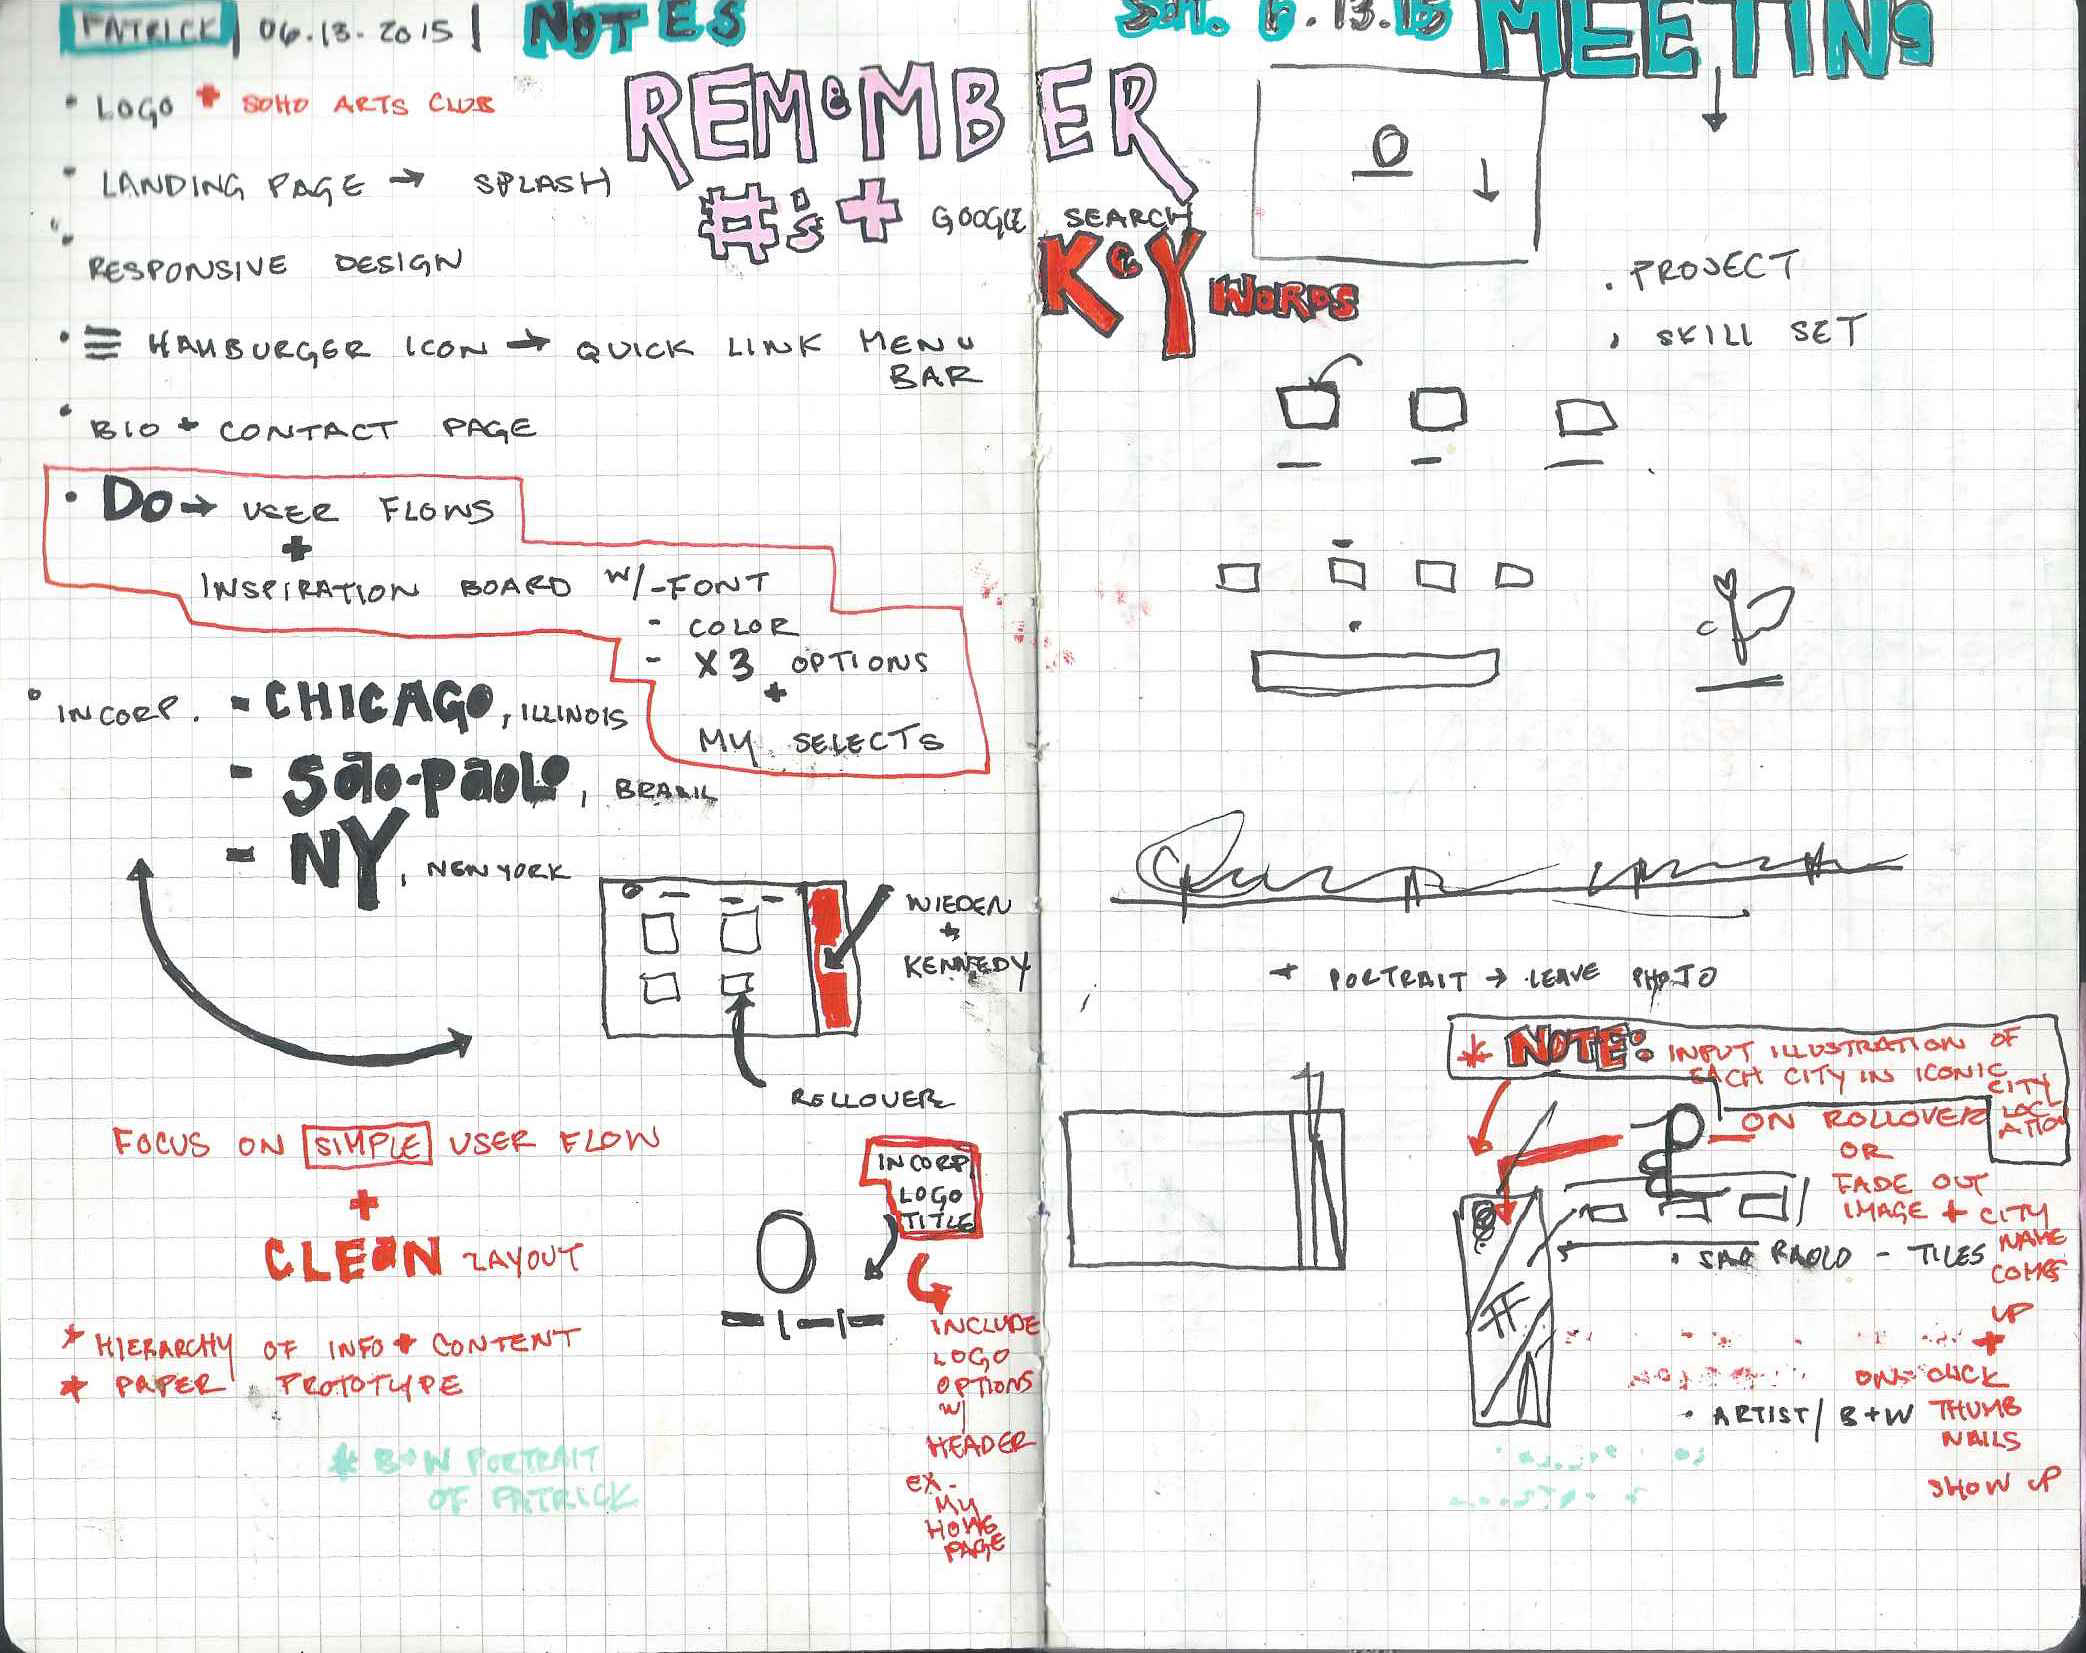 PATRICK | 06.13.2015 | NOTES
• LOGO + SOHO ARTS CLUB
• LANDING PAGE → SPLASH
RESPONSIVE DESIGN
• ☰ HAMBURGER ICON → QUICK LINK MENU
BAR
• BIO + CONTACT PAGE
• DO → USER FLOWS
+
INSPIRATION BOARD W/ - FONT
- COLOR
- X3 OPTIONS
+
MY SELECTS
• INCORP. - CHICAGO, ILLINOIS
- São-paolo, BRASIL
- NY, NEW YORK
WIEDEN
+
KENNEDY
ROLLOVER
FOCUS ON SIMPLE USER FLOW
+
CLEaN LAYOUT
* HIERARCHY OF INFO + CONTENT
* PAPER PROTOTYPE
* B+W PORTRAIT
OF PATRICK
INCORP
LOGO
TITLE
INCLUDE
LOGO
OPTIONS
W/
HEADER
EX-
MY
HOME
PAGE
REMeMBER
#'s + GOOGLE SEARCH
KeY WORDS
6.13.15 MEETING
• PROJECT
• SKILL SET
+ PORTRAIT → LEAVE PHOTO
* NOTE: INPUT ILLUSTRATION OF
EACH CITY IN ICONIC
CITY
LOC-
ATION
- ON ROLLOVER
OR
FADE OUT
IMAGE + CITY
NAME
COMES
UP
+
ONE CLICK
THUMB
NAILS
SHOW UP
• SAO PAOLO - TILES
• ARTIST/ B+W